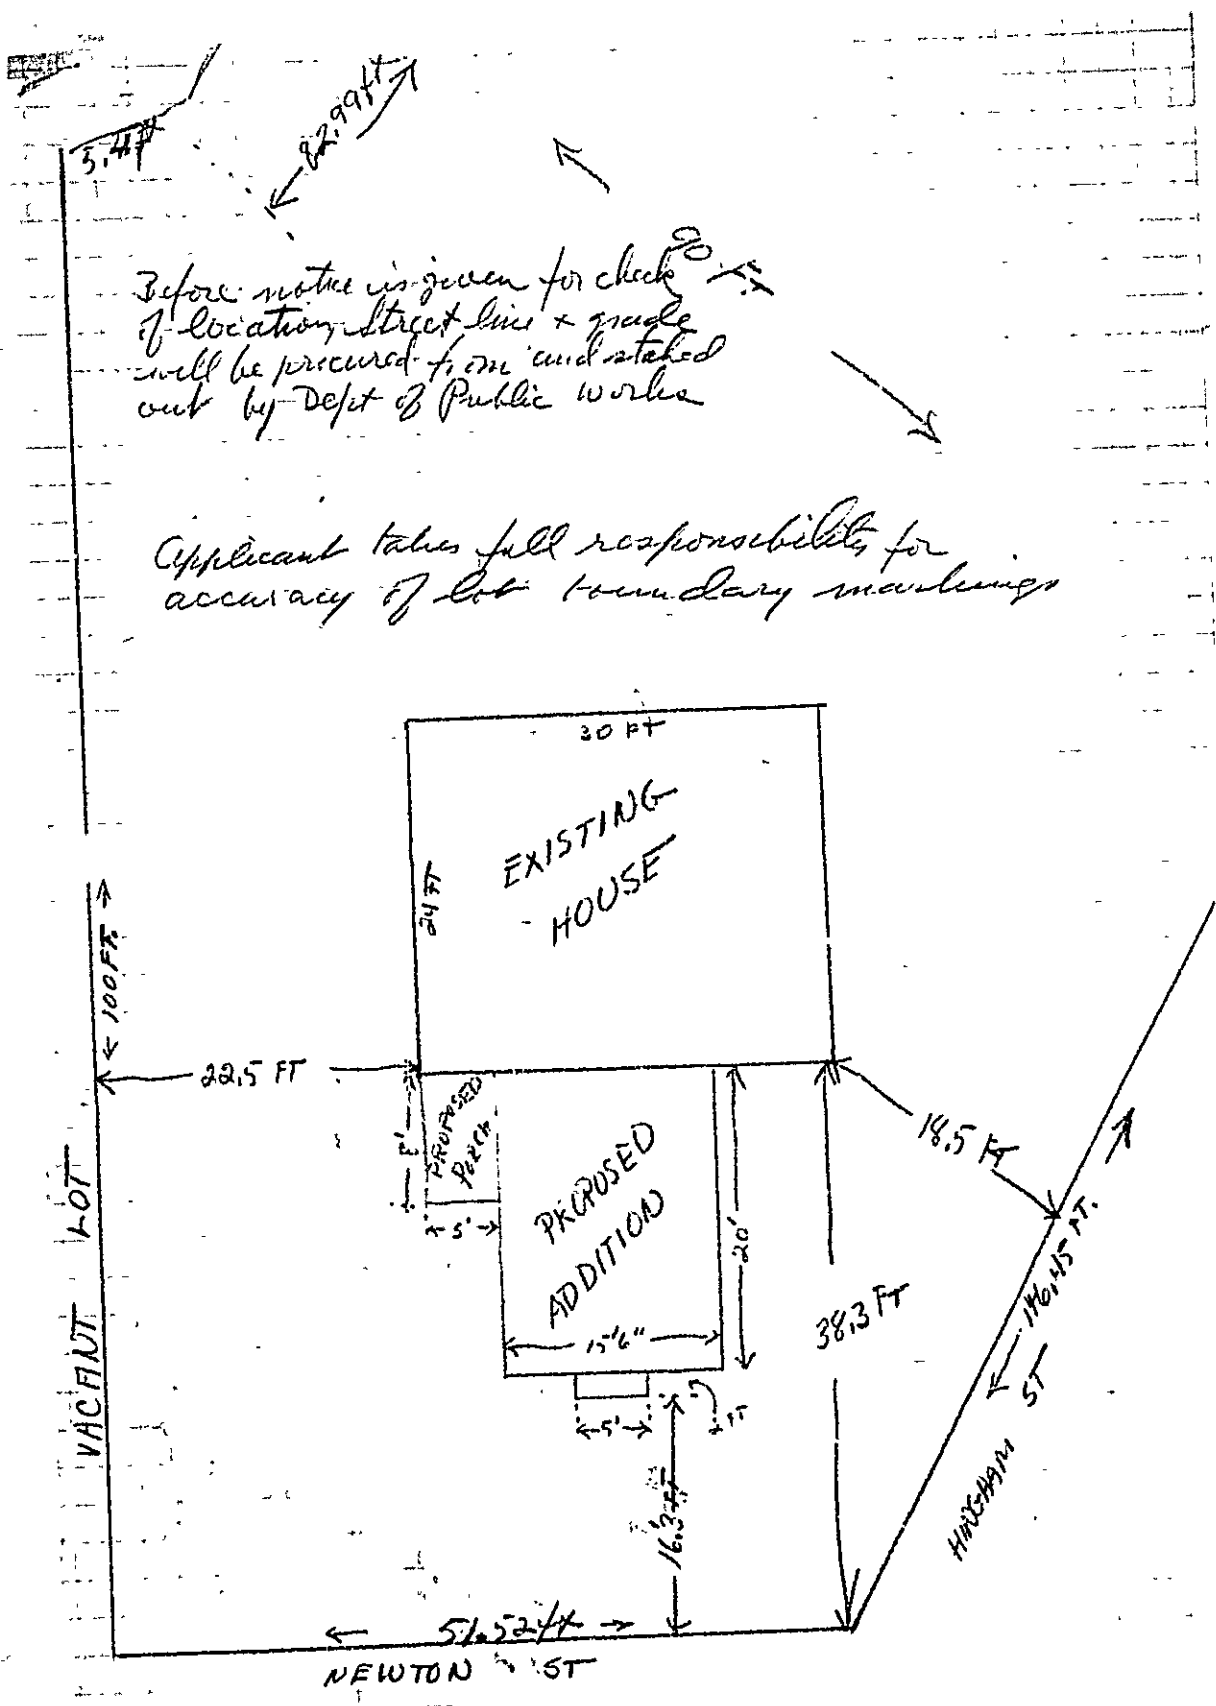 5.4ft
82.99ft
90 ft
Before notice is given for check
of location, Street line & grade
will be procured from and staked
out by Dept of Public works
Applicant takes full responsibility for
accuracy of lot boundary markings
30 FT
EXISTING
HOUSE
24 FT
100 FT.
22.5 FT
8'
PROPOSED
PORCH
5'
PROPOSED
ADDITION
20'
15'6"
18.5 FT
38.3 FT
146.45 FT.
HINGHAM ST
VACANT LOT
5'
FT
16.3 FT
51.52 ft
NEWTON ST